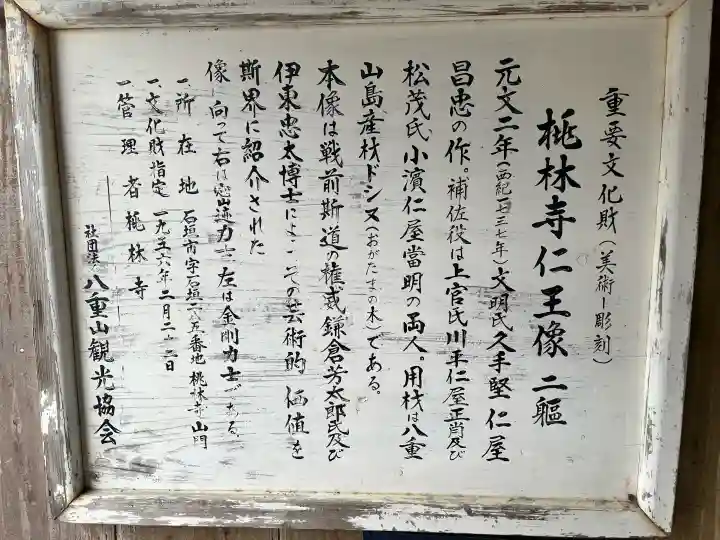 重要文化財(美術ー彫刻)
桃林寺仁王像 二軀
元文二年(西紀一七三七年)文明氏久手堅仁屋
昌忠の作。補佐役は上官氏川平仁屋正肖及び
松茂氏小濵仁屋當明の両人。用材は八重
山島産材ドシヌ(おがたまの木)である。
本像は戦前斯道の権威鎌倉芳太郎氏及び
伊東忠太博士によってその芸術的価値を
斯界に紹介された
像に向って右は密迹力士左は金剛力士である。
一、所在地 石垣市字石垣二八五番地桃林寺山門
一、文化財指定 一九五六年二月二十二日
一、管理者 桃林寺
社団法人 八重山観光協会